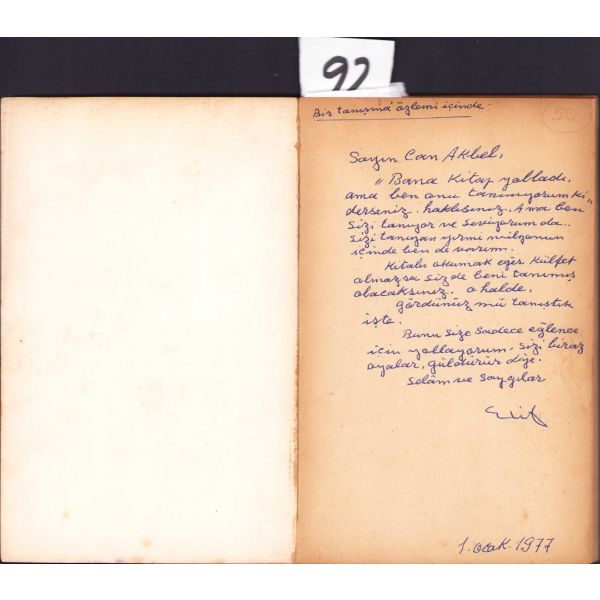 92
Bir tanışma özlemi içinde.
50
Sayın Can Akbel,
" Bana Kitap yolladı,
ama ben onu tanımıyorum ki "
derseniz, haklısınız. Ama ben
sizi tanıyor ve seviyorum da..
sizi tanıyan yirmi milyonun
içinde ben de varım.
Kitabı okumak eğer külfet
olmazsa siz de beni tanımış
olacaksınız. o halde,
gördünüz mü tanıştık
işte.
Bunu size sadece eğlence
için yollayorum. sizi biraz
oyalar, güldürür diye.
selâm ve saygılar
Elif
1. ocak. 1977